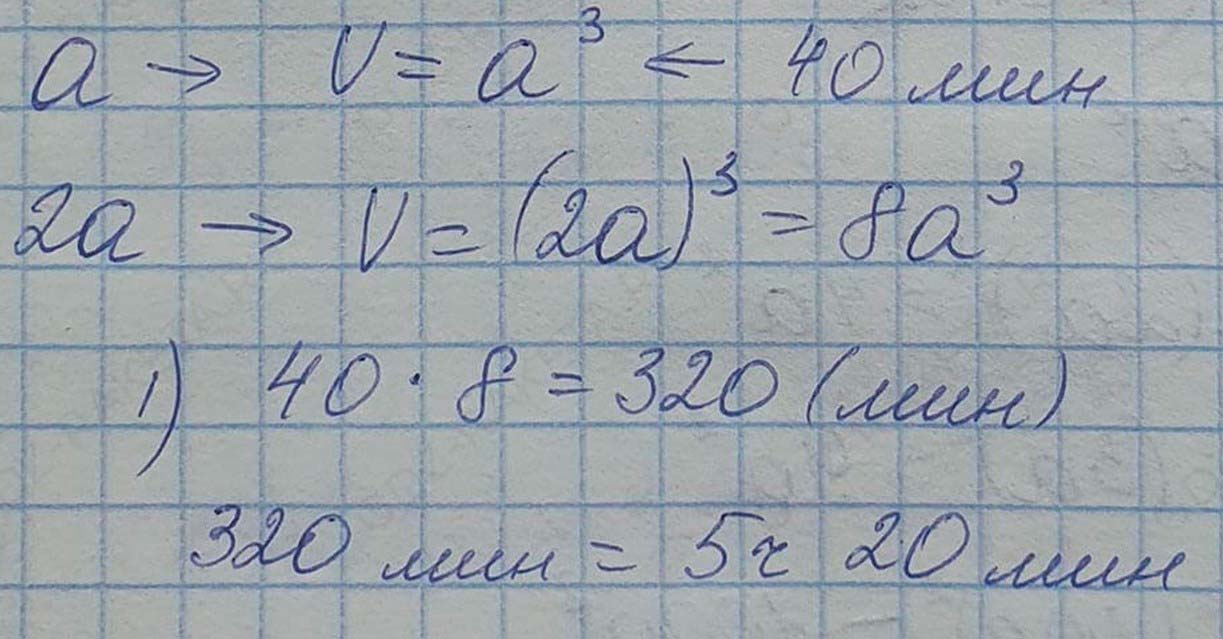 a → V = a³ ← 40 мин
2a → V = (2a)³ = 8a³
1) 40 · 8 = 320 (мин)
320 мин = 5ч 20 мин